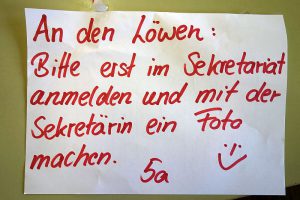 An den Löwen:
Bitte erst im Sekretariat
anmelden und mit der
Sekretärin ein Foto
machen.
5a